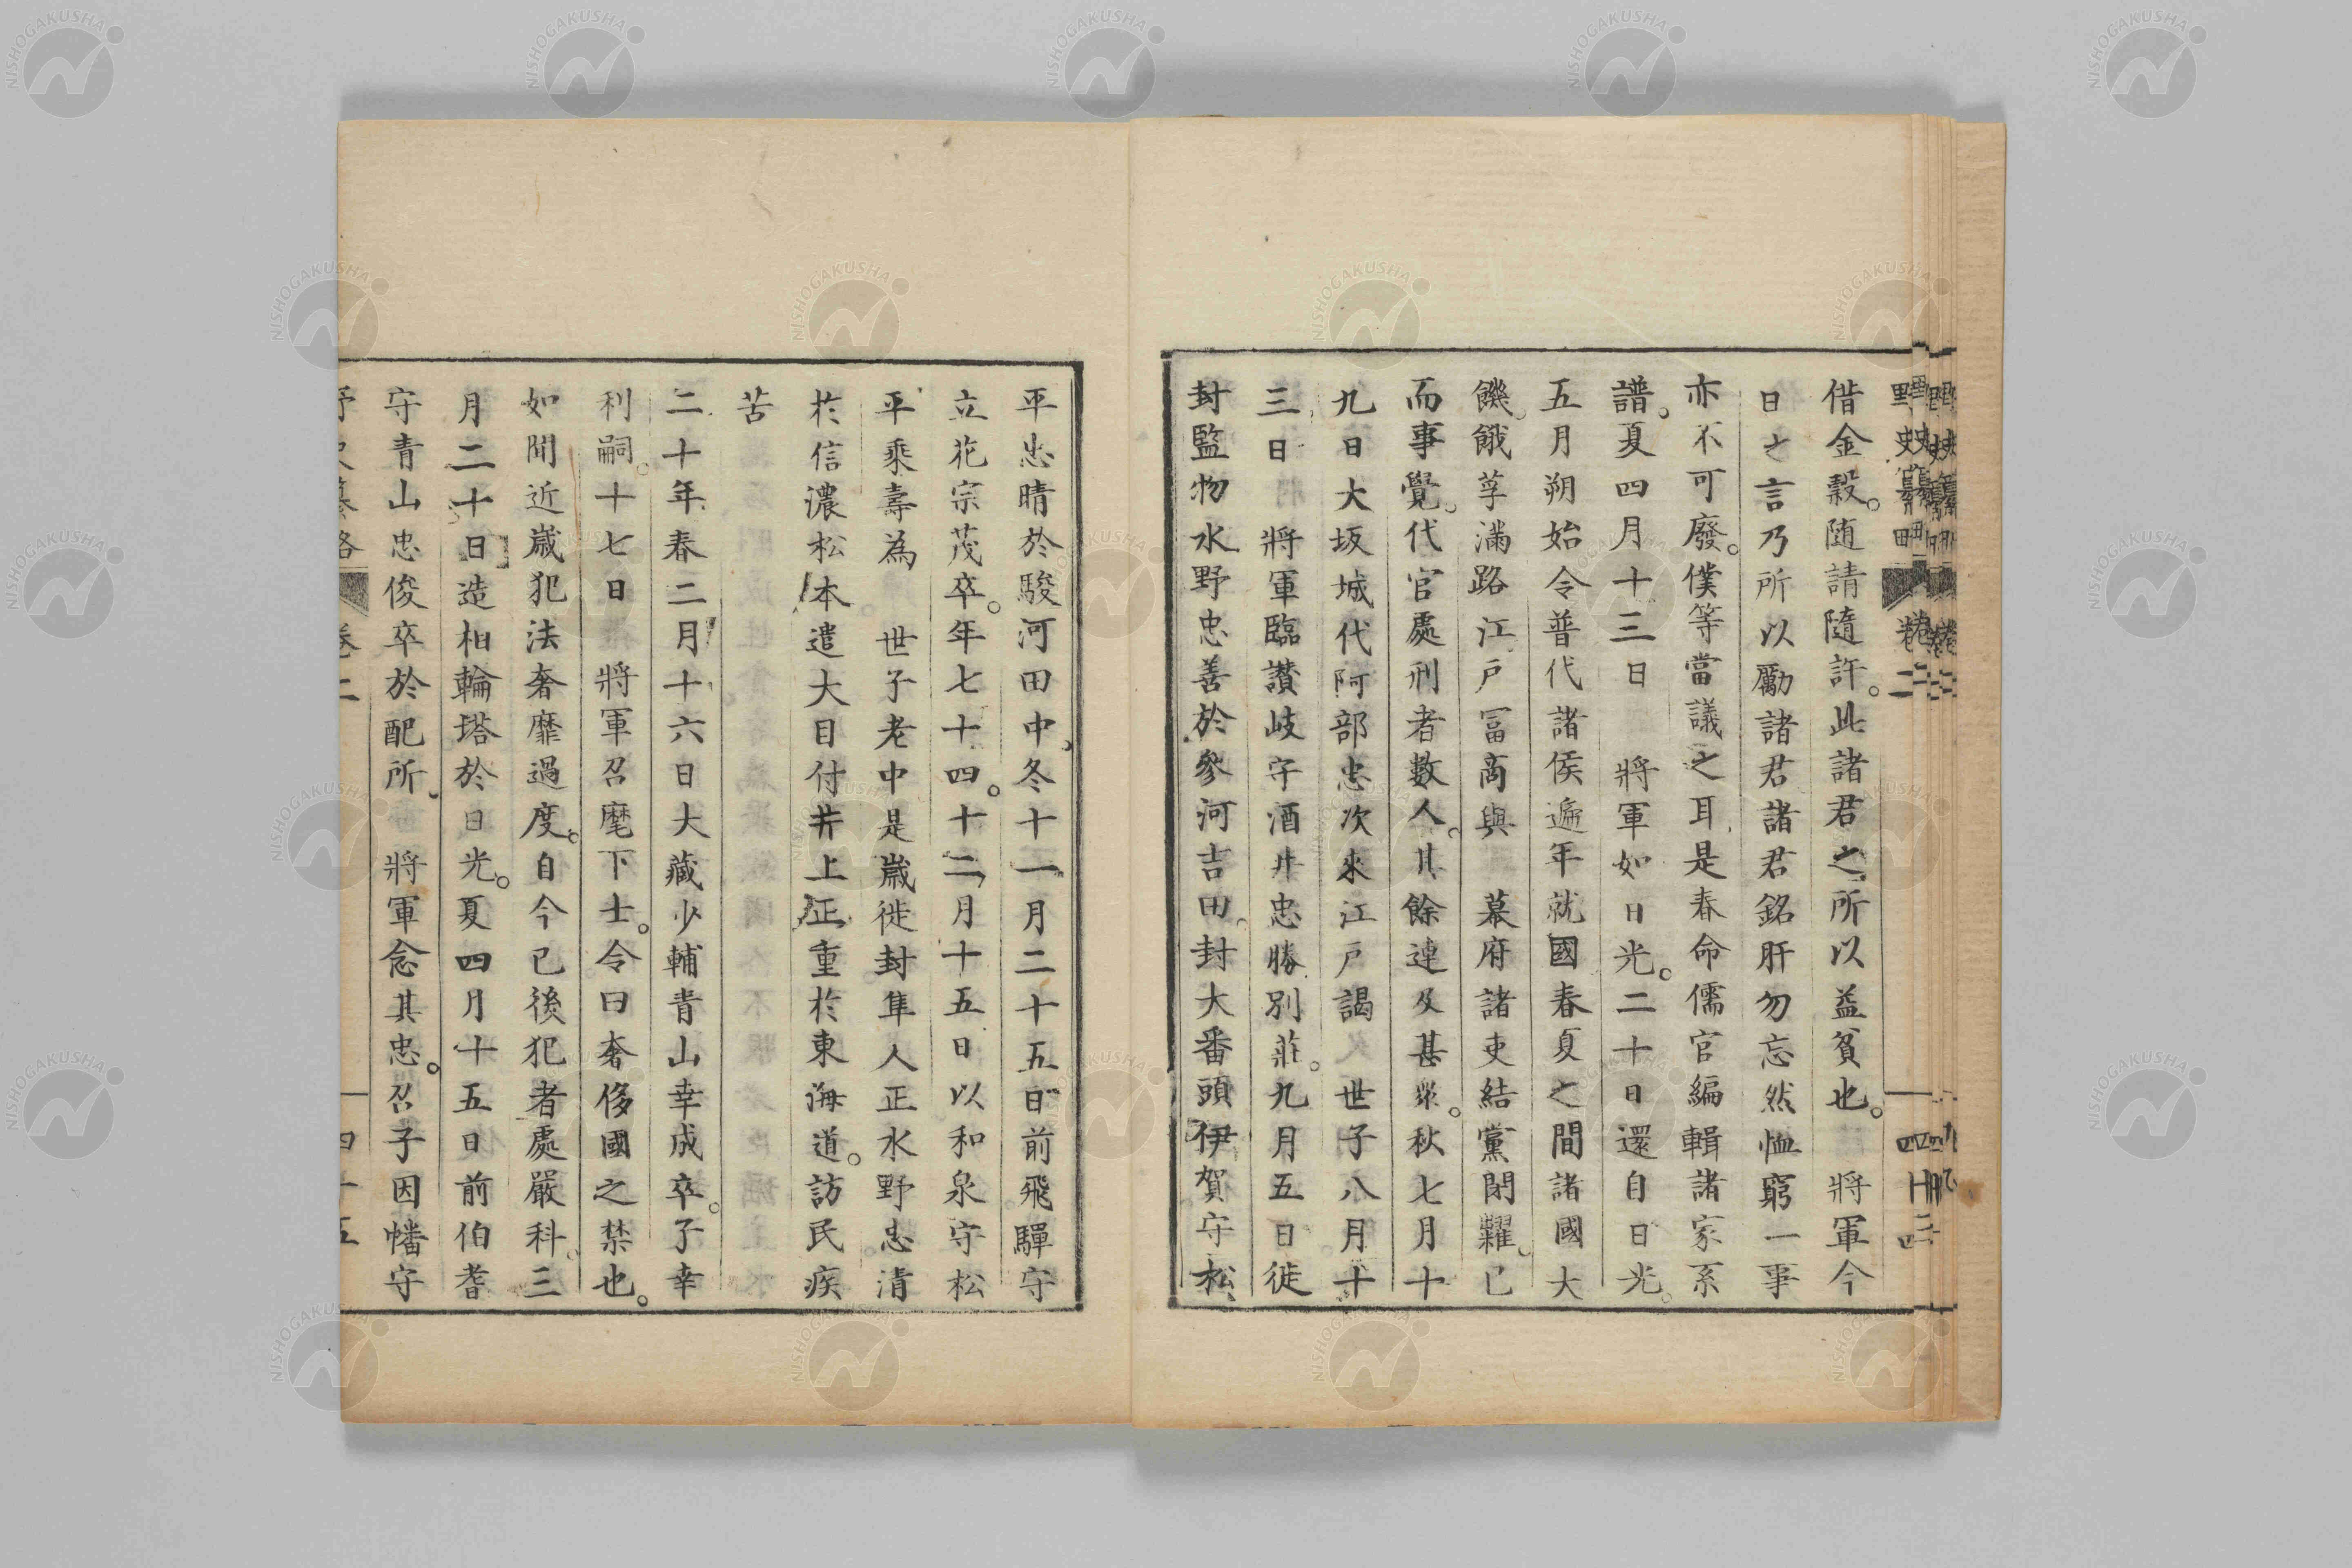 借金穀。隨請隨許。此諸君之所以益貧也。　將軍今
日之言乃所以勵諸君諸君銘肝勿忘然恤窮一事
亦不可廢。僕等當議之耳是春命儒官編輯諸家系
譜。夏四月十三日　將軍如日光。二十日還自日光。
五月朔始令普代諸侯遞年就國春夏之間諸國大
饑。餓莩滿路江戶冨商與　幕府諸吏結黨閉糶。已
而事覺。代官處刑者數人。其餘連及甚衆。秋七月十
九日大坂城代阿部忠次來江戶謁　世子八月十
三日　將軍臨讃岐守酒井忠勝別莊。九月五日徙
封監物水野忠善於參河吉田。封大番頭伊賀守松
平忠晴於駿河田中、冬十一月二十五日前飛驒守
立花宗茂卒。年七十四。十二月十五日以和泉守松
平乘壽為　世子老中是歲徙封隼人正水野忠清
於信濃松本遣大目付井上正重於東海道。訪民疾
苦
二十年春二月十六日大藏少輔青山幸成卒。子幸
利嗣。十七日　將軍召麾下士。令曰奢侈國之禁也。
如聞近歲犯法奢靡過度。自今已後犯者處嚴科。三
月二十日造相輪塔於日光。夏四月十五日前伯耆
守青山忠俊卒於配所　將軍念其忠。召子因幡守
NISHOGAKUSHA